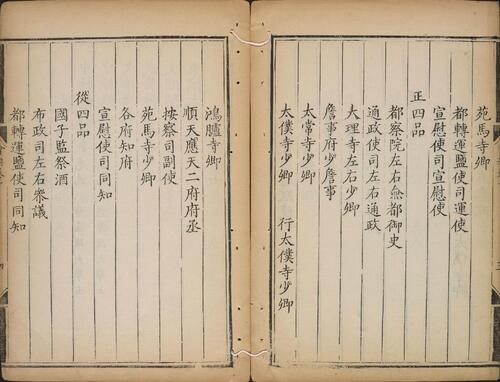 苑馬寺卿
都轉運鹽使司運使
宣慰使司宣慰使
正四品
都察院左右僉都御史
通政使司左右通政
大理寺左右少卿
詹事府少詹事
太常寺少卿
太僕寺少卿 行太僕寺少卿
鴻臚寺卿
順天應天二府府丞
按察司副使
苑馬寺少卿
各府知府
宣慰使司同知
從四品
國子監祭酒
布政司左右叅議
都轉運鹽使司同知